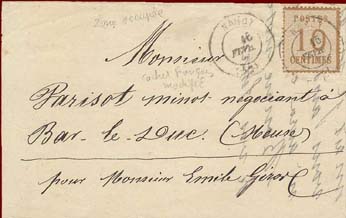 Zone occupée
NANCY
16
FEVR
POSTES
10
CENTIMES
Monsieur
cachet français
modifié
Parisot minot négociant à
Bar-le-Duc (Meuse
pour Monsieur Emile Girod